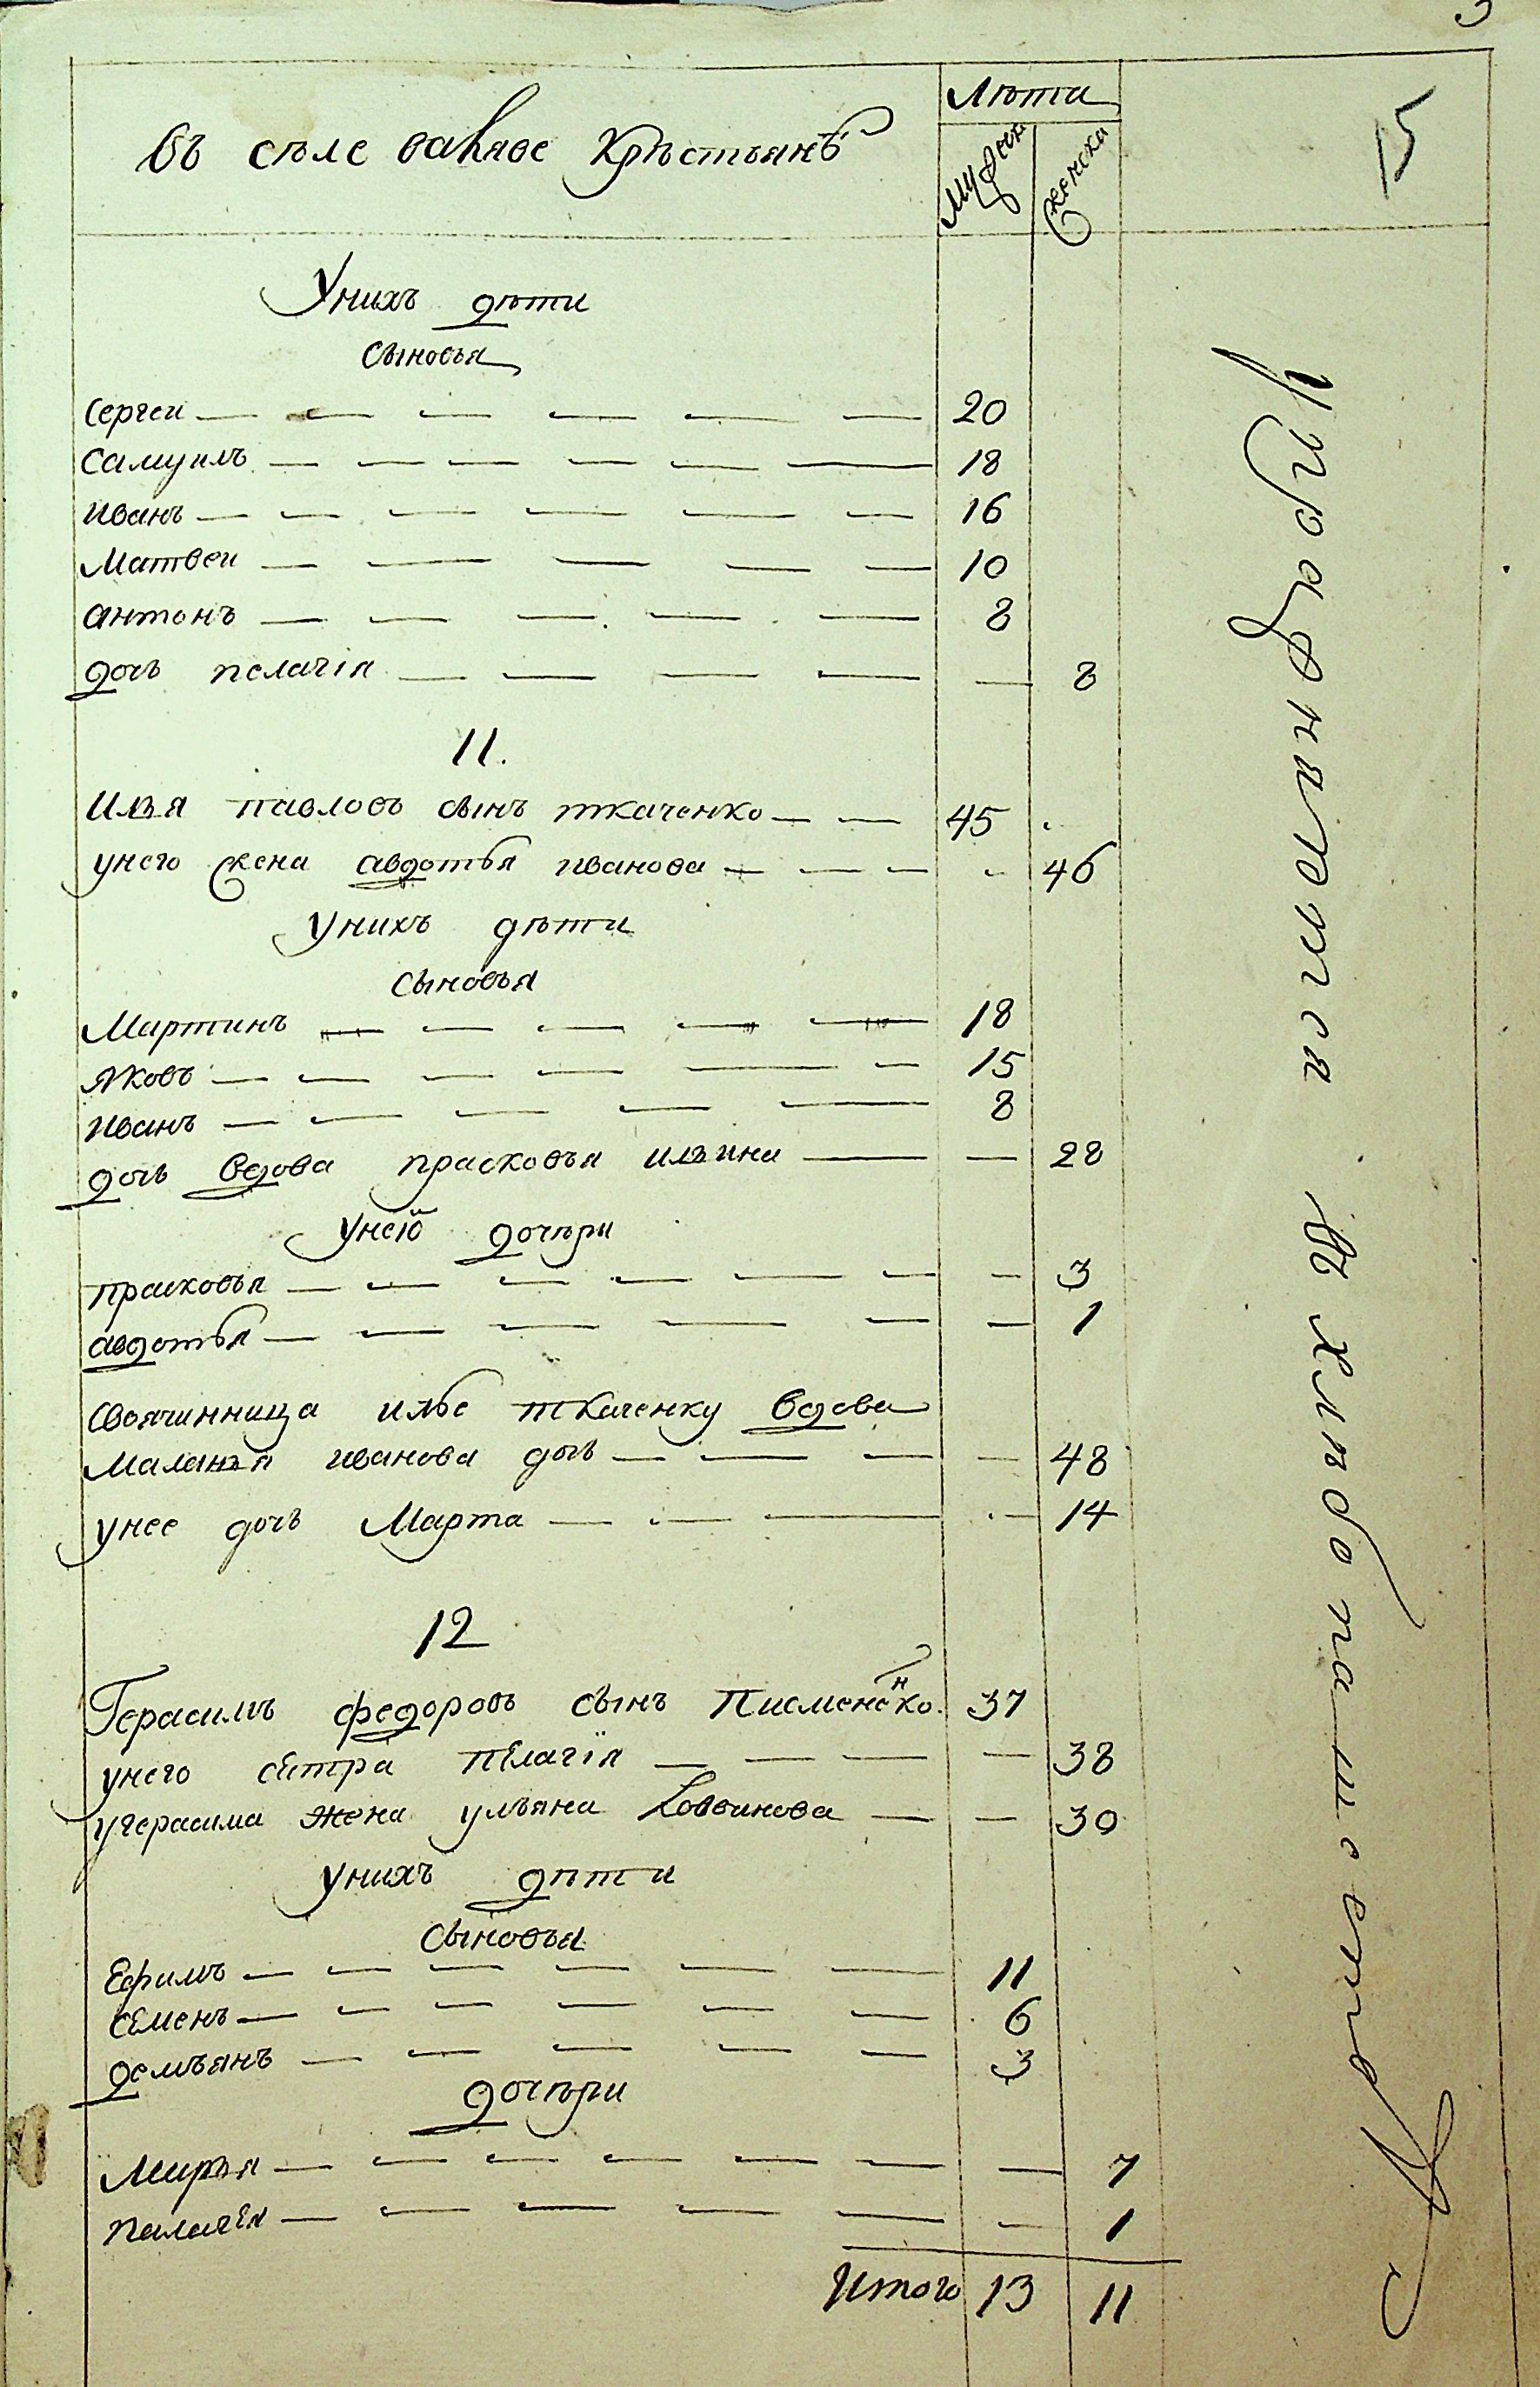 Лѣти
въ сѣле крѣстьянъ
мужеска
женска
15
Унихъ дѣти
сыновья
сергеи 20
самуилъ 18
иванъ 16
Матвеи 10
антонъ 8
дочъ пелагія 8
11.
Илья павловъ сынъ ткаченко 45
унего жена авдотья иванова 46
Унихъ дѣти
сыновья
Мартинъ 18
яковъ 15
иванъ 8
дочъ вдова прасковья ильина 28
Унеiо дочѣри
прасковья 3
авдотья 1
своячинница илье ткаченку вдова
маланья иванова дочъ 48
унее дочъ Марта 14
12
Герасимъ федоровъ сынъ писменѣнко 37
унего сестра пелагїя 38
угерасима жена ульяна 30
Унихъ дѣти
сыновья
Ефимъ 11
семенъ 6
демьянъ 3
дочѣри
Марья 7
палагея 1
Итого 13 11